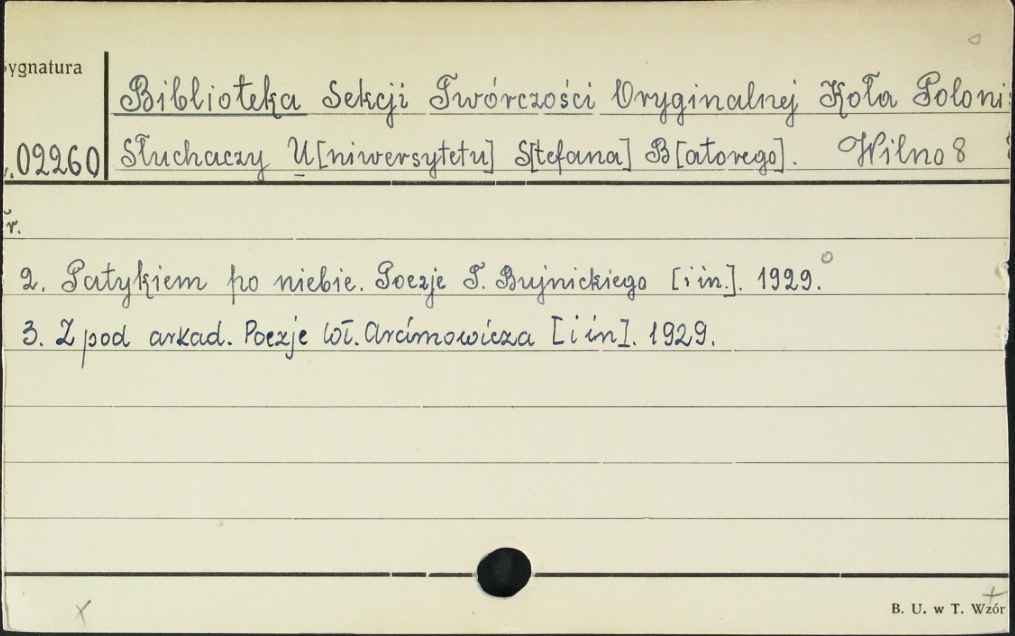 ygnatura
Biblioteka Sekcji Twórczości Oryginalnej Koła Poloni
02260 Słuchaczy U[niwersytetu] S[tefana] B[atorego]. Wilno 8
r.
2. Patykiem po niebie. Poezje T. Bujnickiego [i in.]. 1929.
3. Z pod arkad. Poezje Wł. Arcimowicza [i in]. 1929.
B. U. w T. Wzór